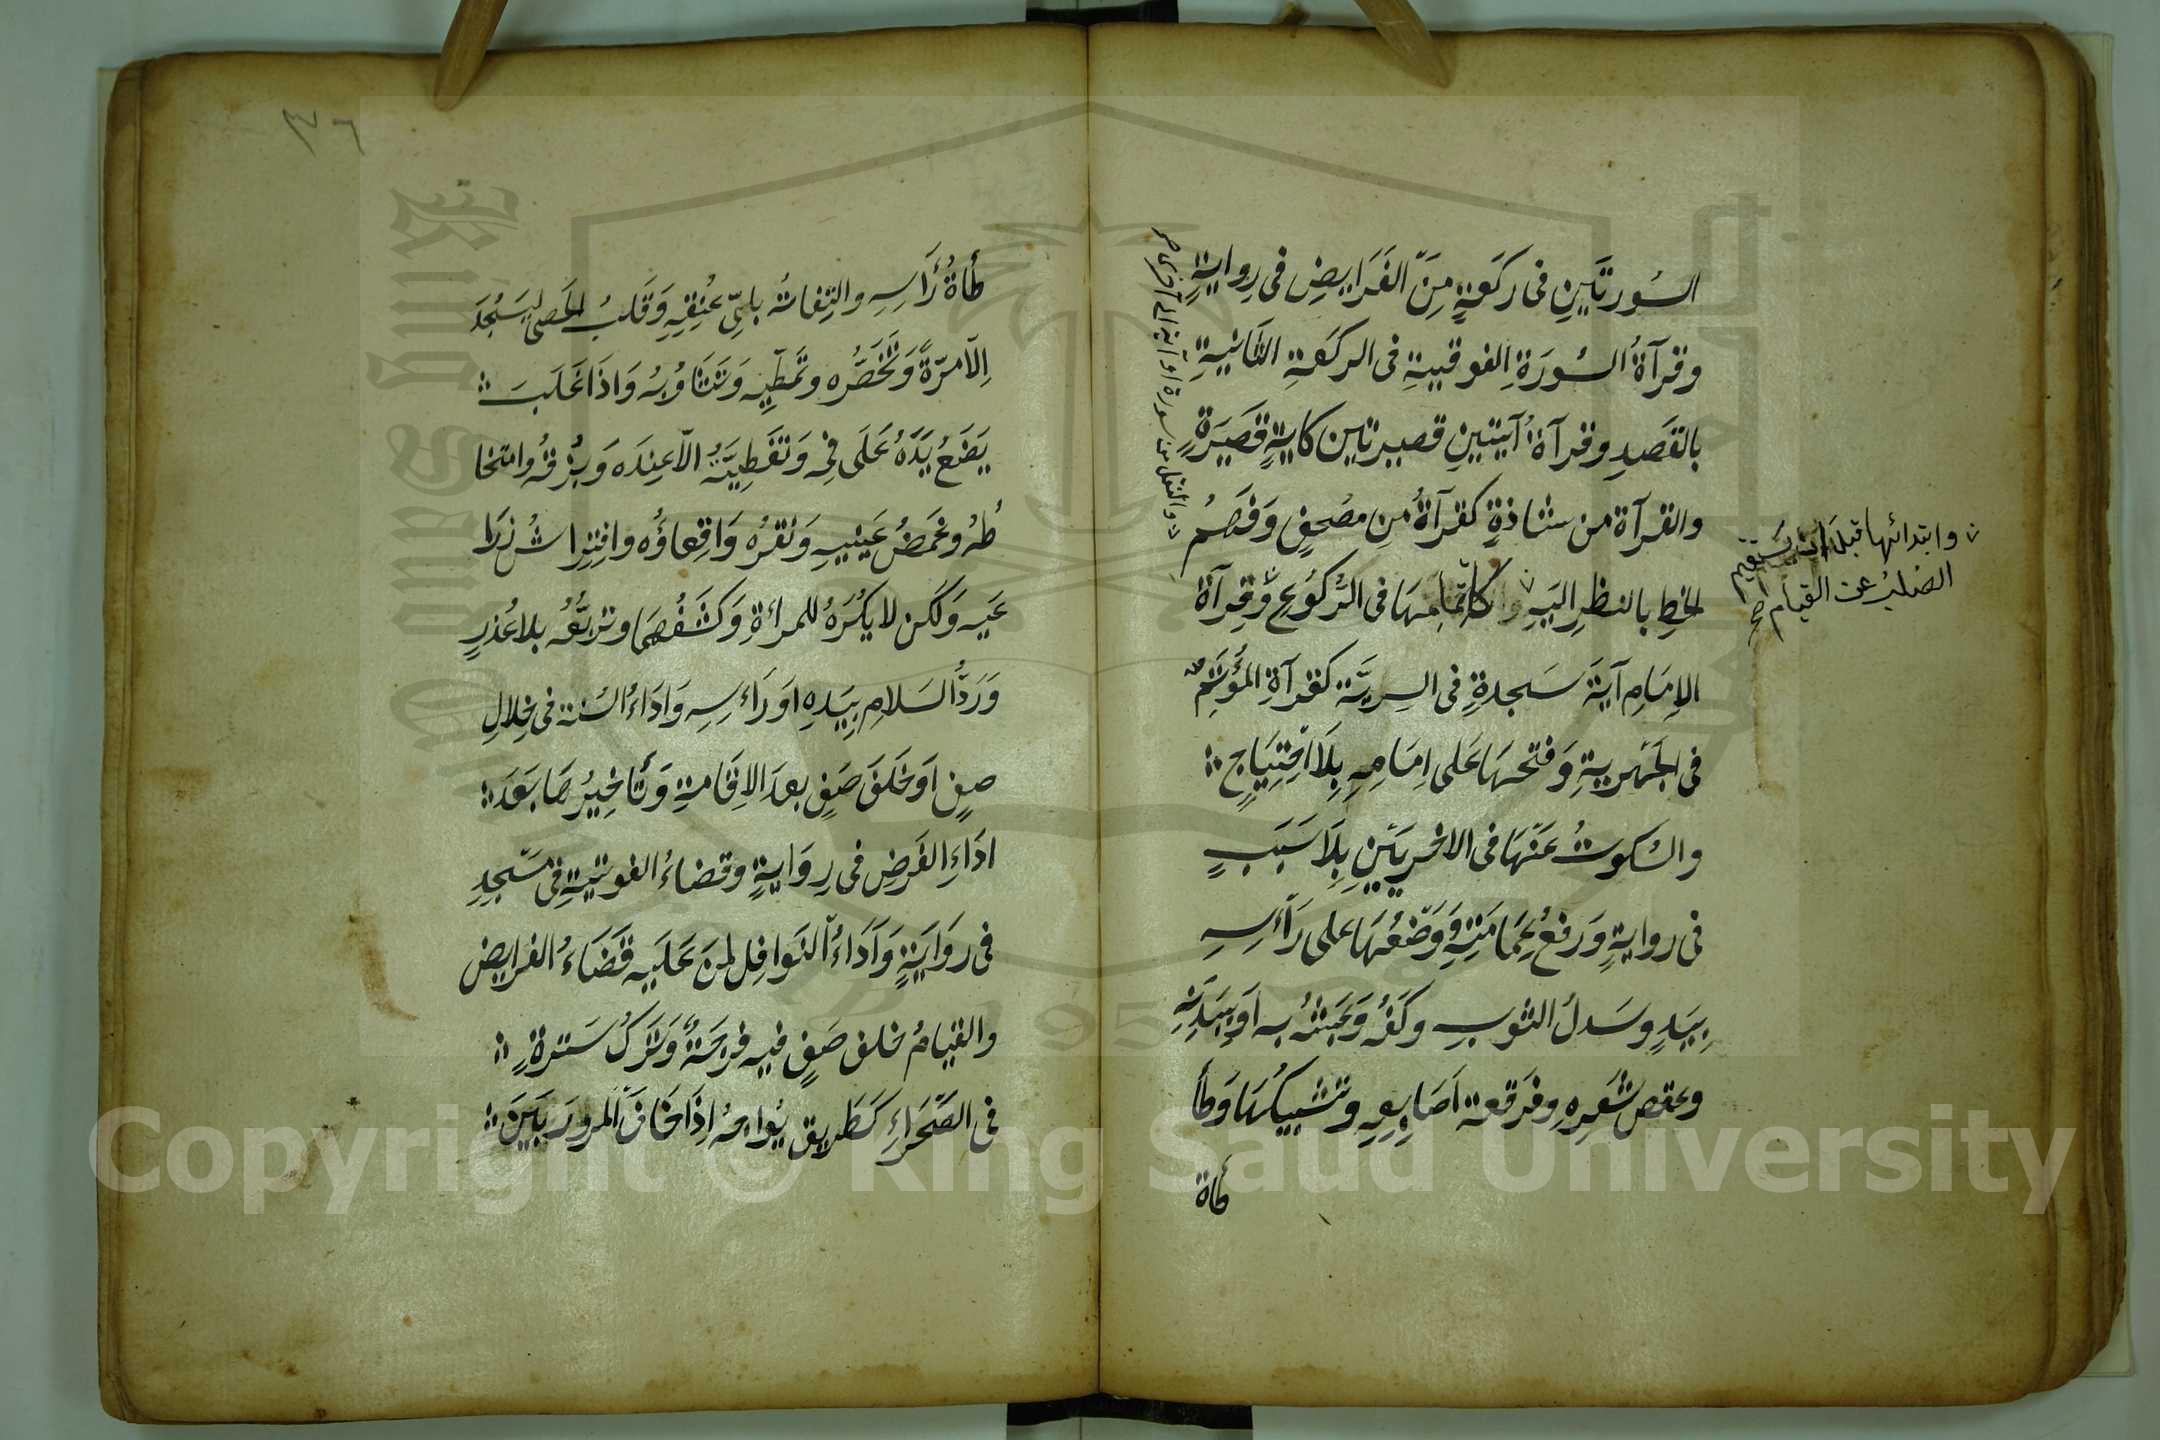 السُورتَينِ فى ركَعةٍ مِنَ الفَرَايِضِ فى رِوايةٍ
وقرآةُ السُورَةِ الفوقيةِ فى الركَعةِ الثَانيةِ
بالقَصدِ وقرآةُ آيتينِ قصيرتين كايةٍ قَصيَرةٍ
والقرآة من شاذةٍ كقرآةُ مِن مصُحفٍ وَفَهَمُ
الخطِ بالنظرِ اليَهِ كاتمامِهَا فى الركوُعِ وَقرآة
الاِمَامِ آيَةَ سَجدةٍ فى السِريَّة كقرآةِ المُؤتَمِ
فى الجَهريةِ وَفتحهَا عَلى اِمَامِهِ بِلَا احْتِيَاجٍ
والسُكوتُ عَنْهَا فى الاخريَينِ بِلَا سَبَبٍ
فى روايةٍ وَرفعُ عِمَامَتِهِ وَوَضعُهَا على رَأسِهِ
بِيَدٍ وسَدلُ الثوبِ وكَفُّه وَعَبثُه به اَو بِبَدَنِهِ
وعقص شَعَرِهِ وفَرقعة اَصَابِعِهِ وتشبيكُهَا وَطأ
طأة
وابتدائها قبل ان يستقيم
الصلبُ عن القيام صح
والنفل من سورة او آية الى اخرى صح
٣٦
طأةُ رَأسِهِ والتِفاتُه باىِّ عُنِقِهِ وَقَلبُ الحَصى ليَسَجُدَ
اِلّا مرّةً وَتَخَصُّره وتَمطّيِه وَتثاوُبه وَاذَا غَلبَ
يَضَعُ يَدَهُ عَلَى فِه وَتغَطِيَتُه الّا عِندَه وَبُزقُه وامتخا
طُه وغَمَضُ عَينيهِ وَنقرُه وَاقِعاؤُه وافتِرِاشُ ذرا
عَيه وَلكَن لا يكُرَهُ للمرأةِ وَكشَفُهَما وتربّعُه بلا عُذرٍ
وَرَدُّ السَلامِ بِيَدهِ اوَ رَاءسِهِ وَادَاءُ السُنة فى خِلالِ
صفٍ اَو خَلفَ صَفٍ بعدَ الاِقامةِ وَتأخيرُهَا بَعَدَ
ادَاءِ الفَرضِ فى رِوَايةٍ وقضاءُ الفوتيةِ فى مَسَجِدِ
فى روَايَةٍ وَاَدَاءُ النَوافِل لمِنَ عَليَهِ قَضَاءُ الفرايض
والقيامُ خلف صَفٍ فيه فرجَةٌ وَتَركُ سَترةٍ
فى الصَحَراءِ كَطَريق يُواجهُ اِذَا خَافَ المرورَ بَيَنَ
King Saud University
1957
Copyright © King Saud University